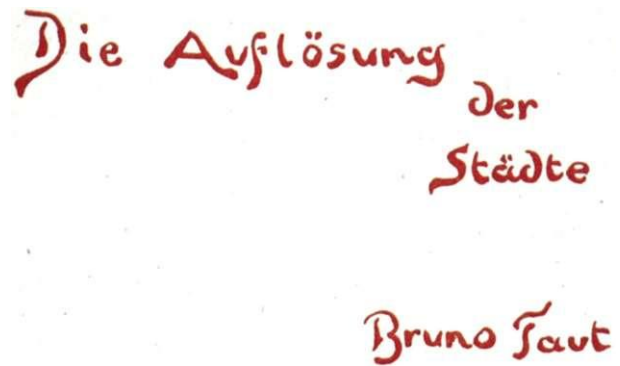 Die Auflösung
der
Städte
Bruno Taut